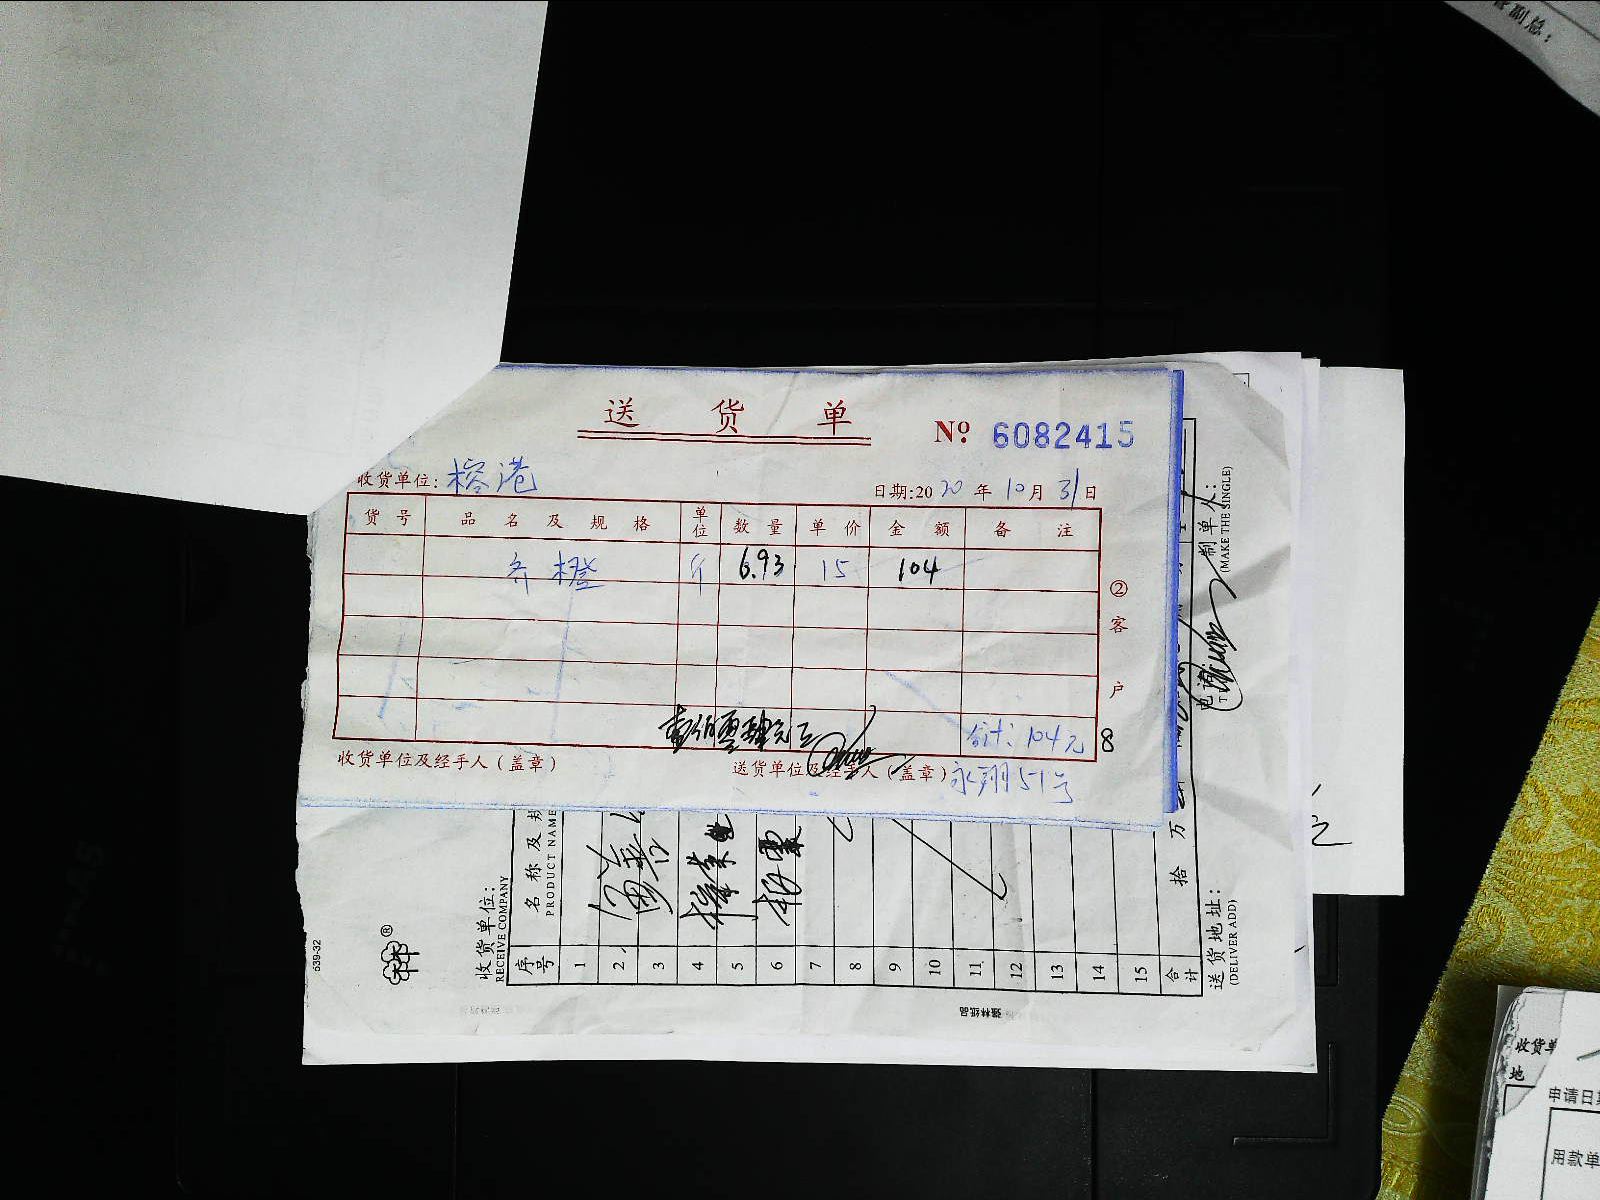 管副总：
送 货 单
№ 6082415
收货单位：榕港
日期:2020年10月31日
货号 品名及规格 单位 数量 单价 金额 备注
齐橙 斤 6.93 15 104
② 客户
壹佰零肆元正
合计：104元
8
收货单位及经手人（盖章）
送货单位及经手人（盖章）永翔51号
收货单位：
RECEIVE COMPANY
序号 名称及规
PRODUCT NAME
1
2
3
4
5
6
7
8
9
10
11
12
13
14
15
合计 拾 万
送货地址：
(DELIVER ADD)
制单人：
(MAKE THE SINGLE)
电
539-32
®
强林纸品
收货单
地
申请日期
用款单